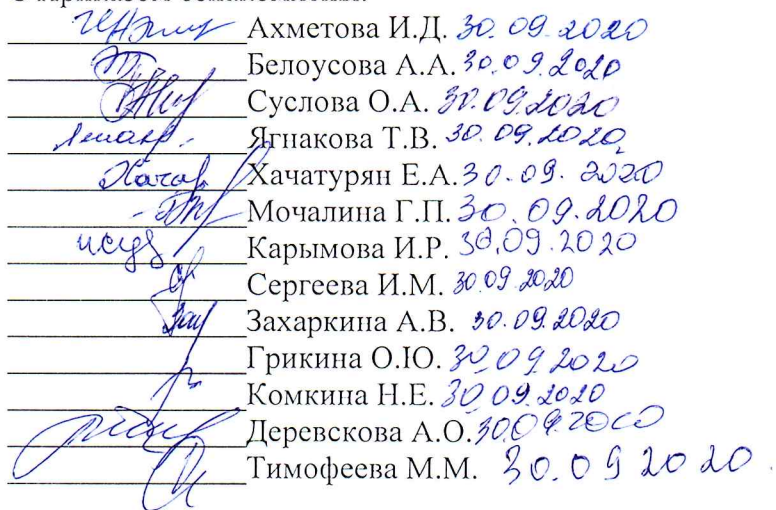 Ахметова И.Д. 30.09.2020
Белоусова А.А. 30.09.2020
Суслова О.А. 30.09.2020
Ягнакова Т.В. 30.09.2020
Хачатурян Е.А. 30.09.2020
Мочалина Г.П. 30.09.2020
Карымова И.Р. 30.09.2020
Сергеева И.М. 30.09.2020
Захаркина А.В. 30.09.2020
Грикина О.Ю. 30.09.2020
Комкина Н.Е. 30.09.2020
Деревскова А.О. 30.09.2020
Тимофеева М.М. 30.09.2020